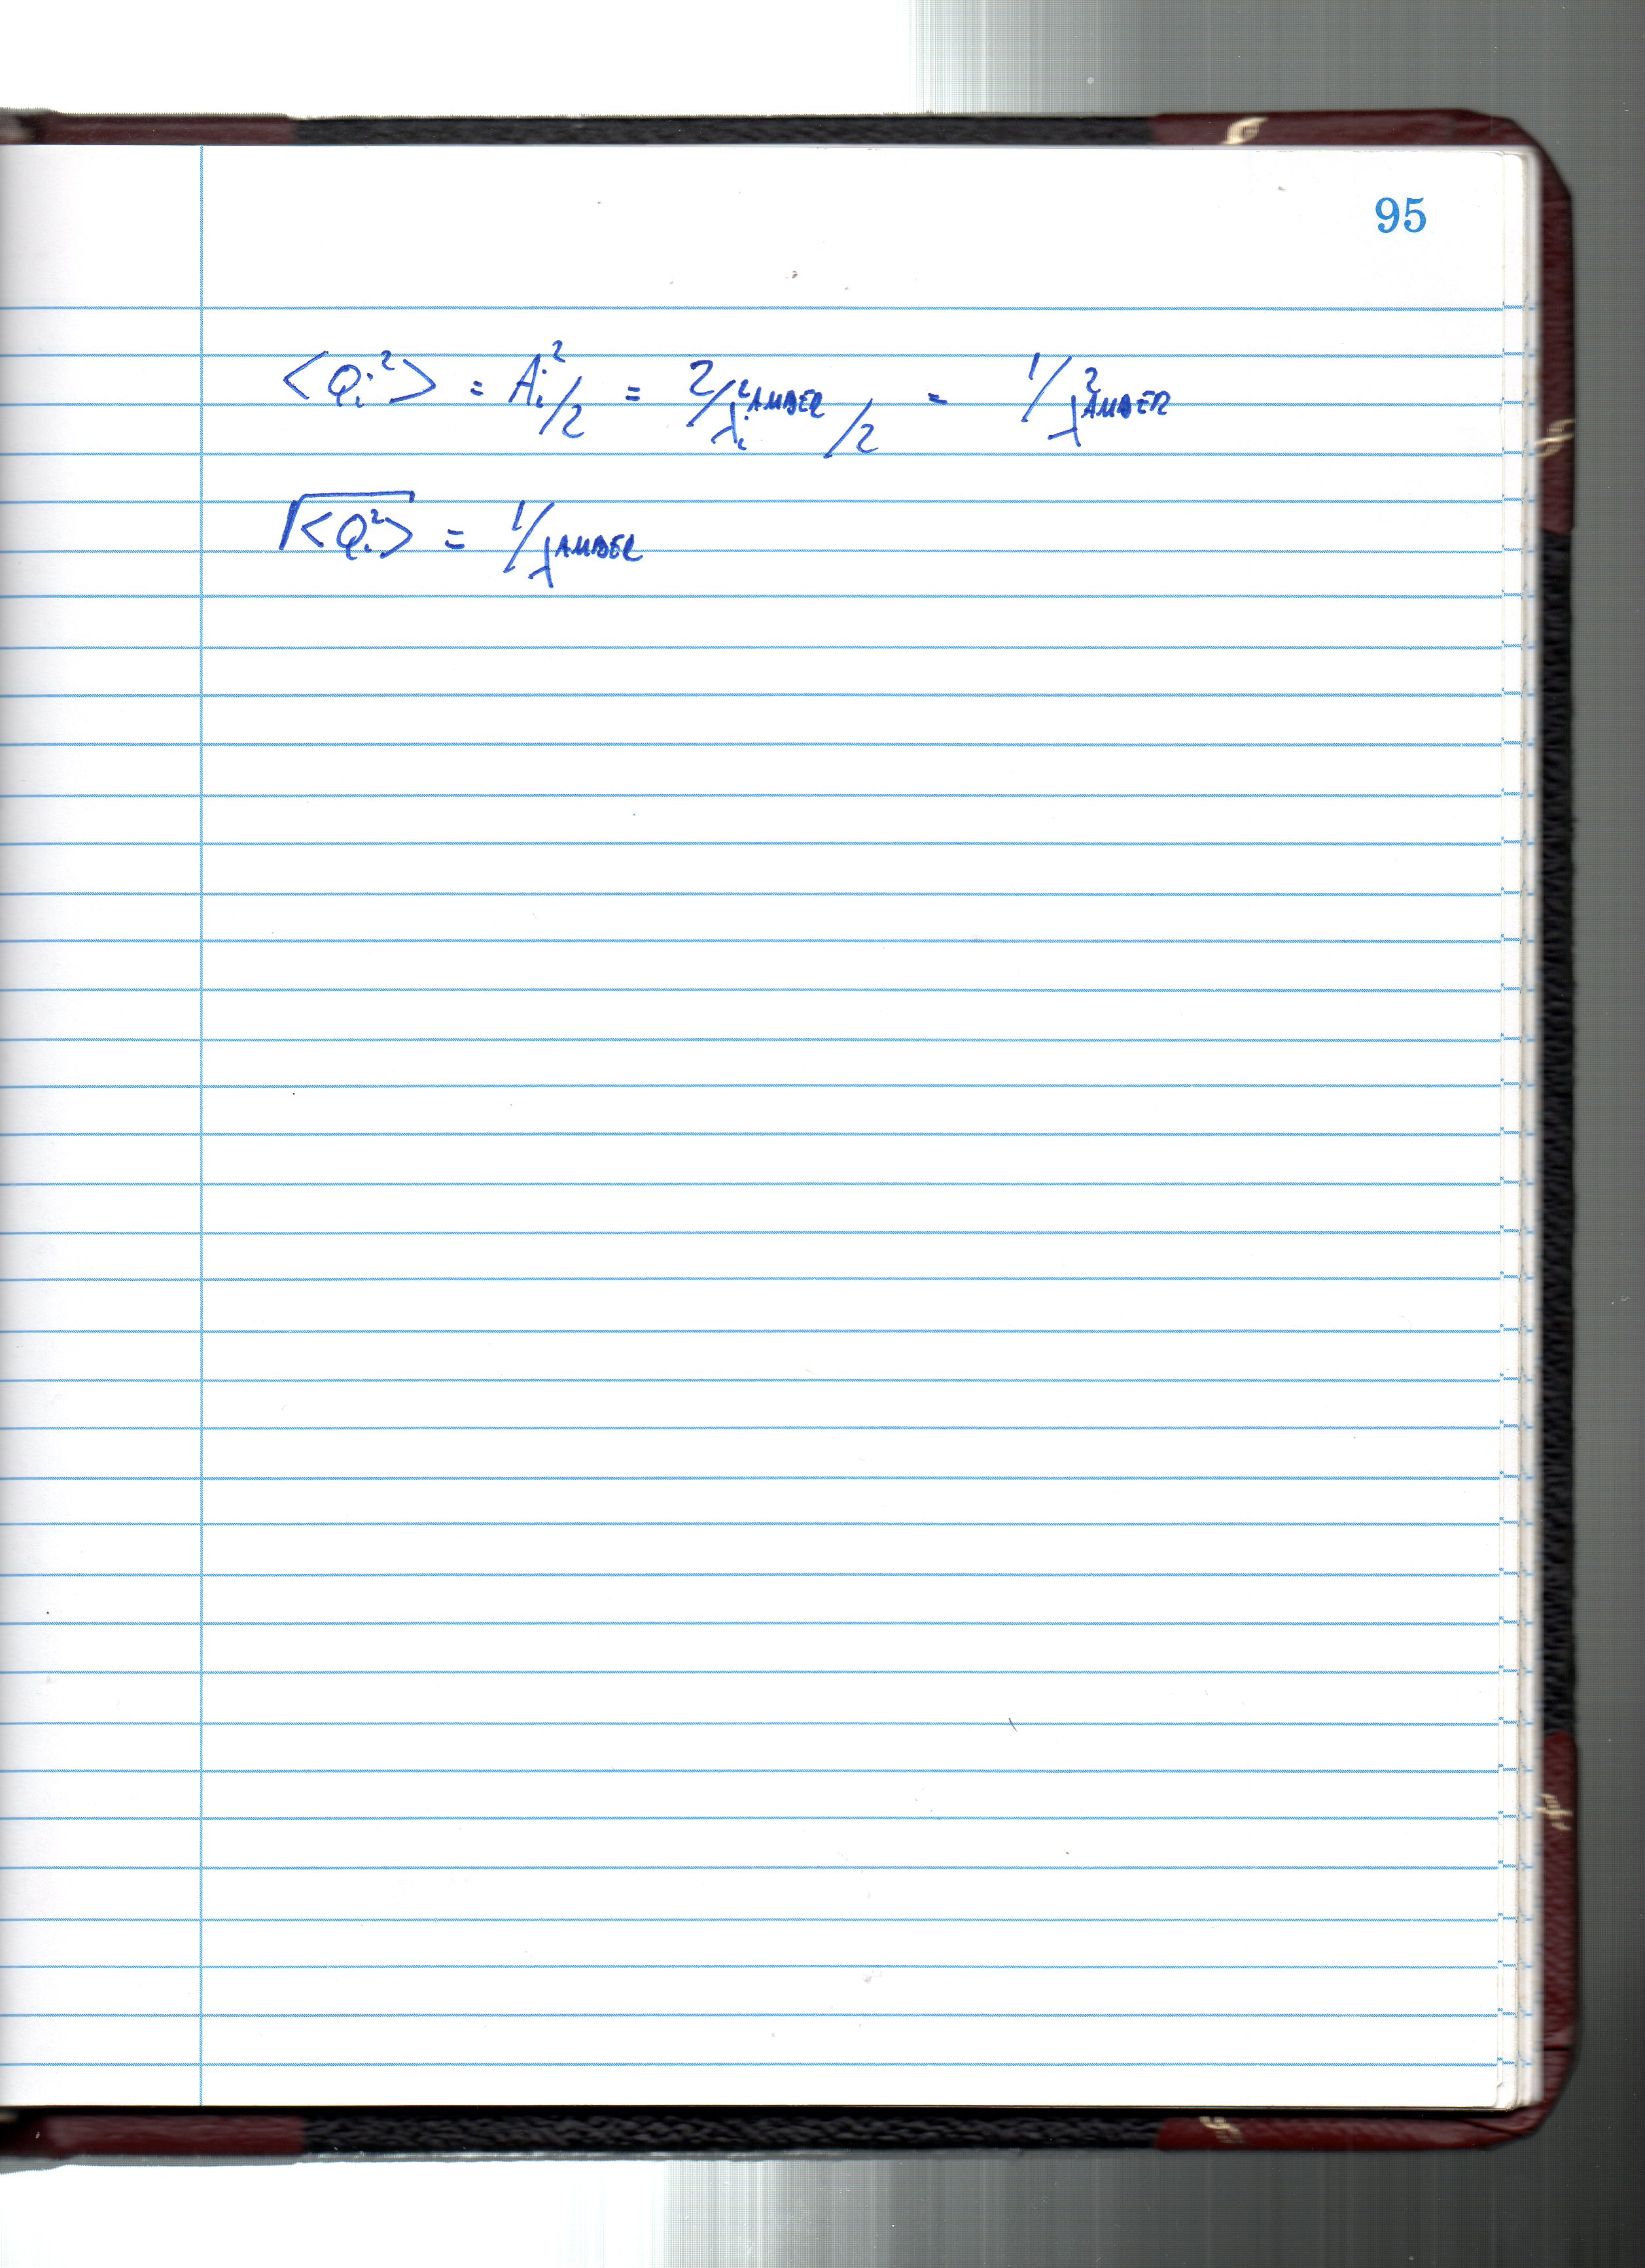 95
<Qi²> = Ai²/2 = 2/λi² AMBER /2 = 1/λ² AMBER
√<Qi²> = 1/λ AMBER